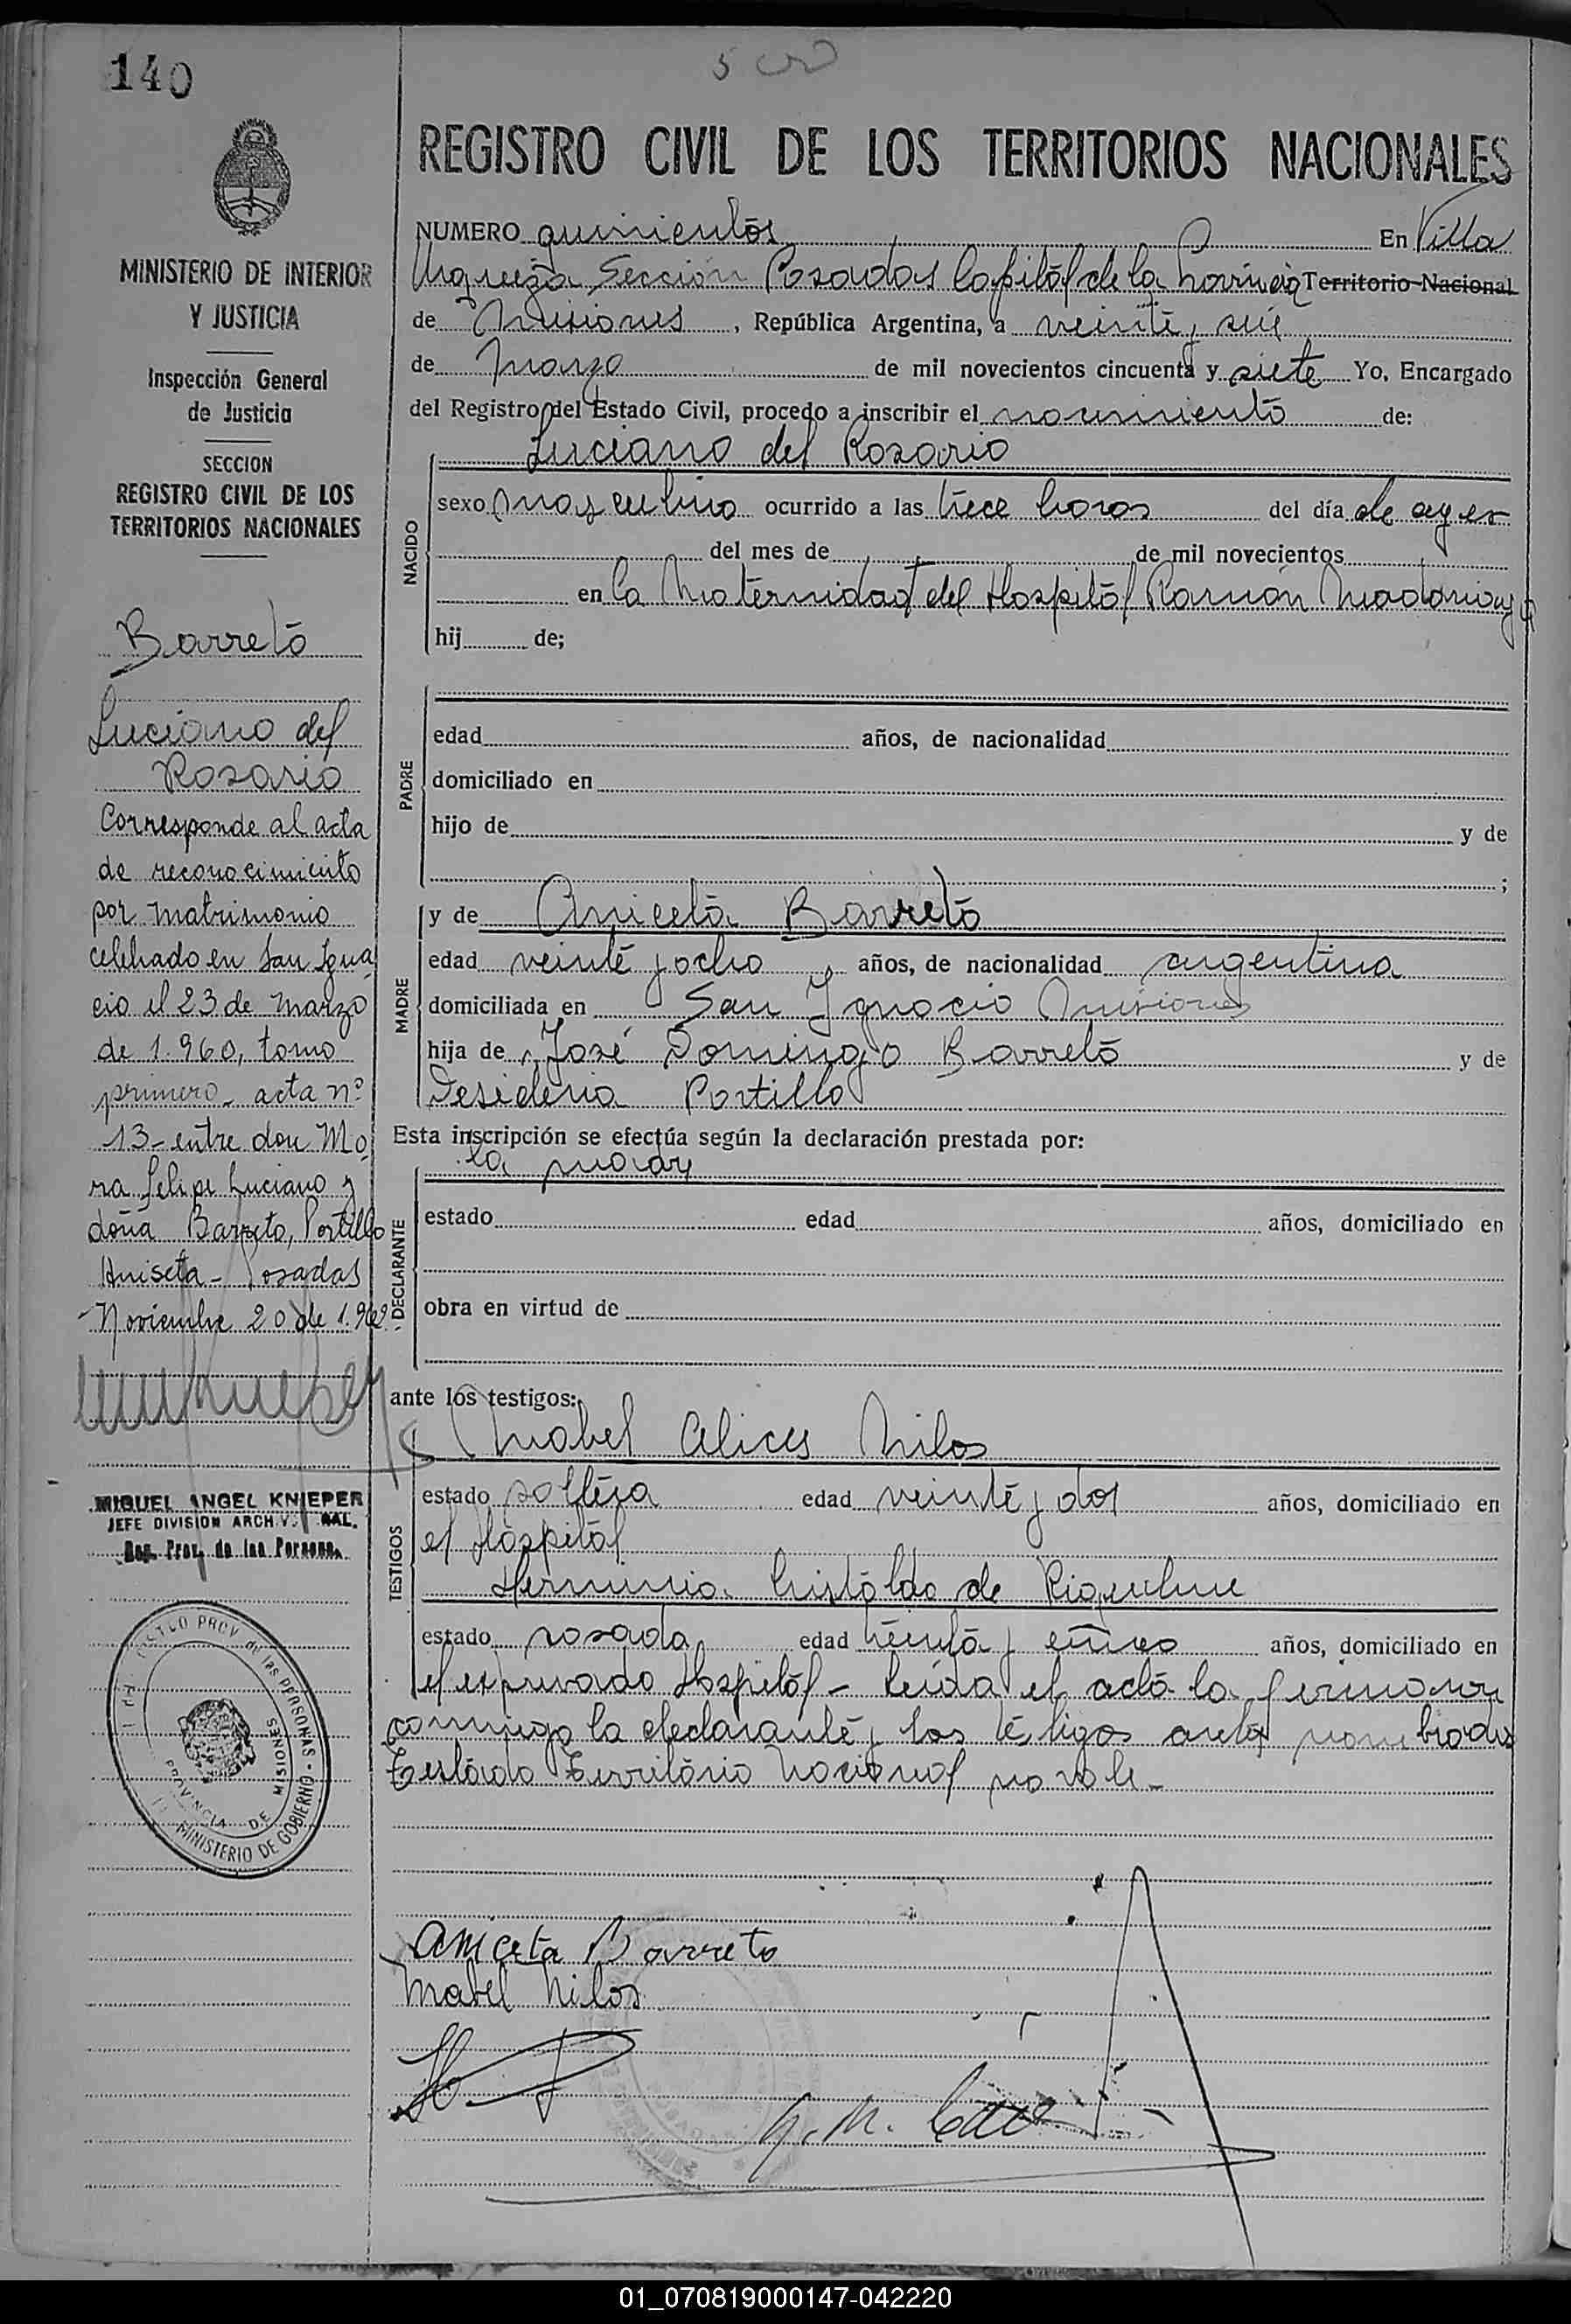 140
500
REGISTRO CIVIL DE LOS TERRITORIOS NACIONALES
MINISTERIO DE INTERIOR
Y JUSTICIA
Inspección General
de Justicia
SECCION
REGISTRO CIVIL DE LOS
TERRITORIOS NACIONALES
Barreto
Luciano del
Rosario
Corresponde al acta
de reconocimiento
por matrimonio
celebrado en San Igna
cio el 23 de Marzo
de 1.960, tomo
primero - acta nº
13 - entre don Mo
ra Felipe Luciano y
doña Barreto, Portillo
Aniseta - Posadas
Noviembre 20 de 1.962
MIGUEL ANGEL KNIEPER
JEFE DIVISION ARCH. GRAL.
Reg. Prov. de las Personas
PROV. de las PERSONAS
PROVINCIA DE MISIONES
MINISTERIO DE GOBIERNO
NUMERO quinientos En Villa
Urquiza Sección Posadas Capital de la Provincia Territorio Nacional
de Misiones, República Argentina, a veinte y seis
de Marzo de mil novecientos cincuenta y siete Yo, Encargado
del Registro del Estado Civil, procedo a inscribir el nacimiento de:
NACIDO
Luciano del Rosario
sexo masculino ocurrido a las trece horas del día de ayer
del mes de de mil novecientos
en la Maternidad del Hospital Ramón Madariaga
hij de;
PADRE
edad años, de nacionalidad
domiciliado en
hijo de y de
;
MADRE
y de Aniceta Barreto
edad veinte y ocho años, de nacionalidad argentina
domiciliada en San Ignacio Misiones
hija de José Domingo Barreto y de
Desideria Portillo
Esta inscripción se efectúa según la declaración prestada por:
DECLARANTE
la madre
estado edad años, domiciliado en
obra en virtud de
ante los testigos:
TESTIGOS
Mabel Alicia Milos
estado soltera edad veinte y dos años, domiciliado en
el Hospital
Herminia Cristaldo de Riquelme
estado casada edad treinta y cinco años, domiciliado en
el expresado Hospital - Leída el acta la firmaron
conmigo la declarante y los testigos antes nombrados
Testado Territorio Nacional no vale -
Aniceta Barreto
Mabel Milos
01_070819000147-042220